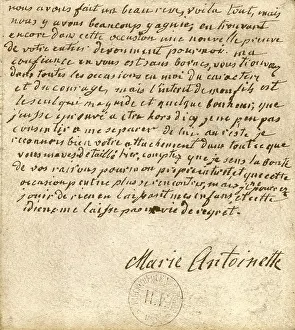 nous avons fait un beau reve, voila tout, mais
nous y avons beaucoup gagné, en trouvant
encore dans cette occasion une nouvelle preuve
de votre entier devouement pour moi. ma
confiance en vous est sans bornes, vous trouverez
dans toutes les occasions en moi du caractere
et du courage, mais l'interet de mon fils est
le seul qui me guide et quelque bonheur, que
j'eusse eprouvé a etre hors d'ici, je ne peu pas
consentir a me separer de lui. au reste je
reconnois bien votre attachement dans tout ce que
vous m'avez detaillé hier, comptez que je sens la bonté
de vos raisons pour mon propre interet et que cette
occasion peut ne plus se rencontrer, mais je ne pourrois
jouir de rien en laissant mes enfans et cette
idée ne me laisse pas de regret.
Marie Antoinette